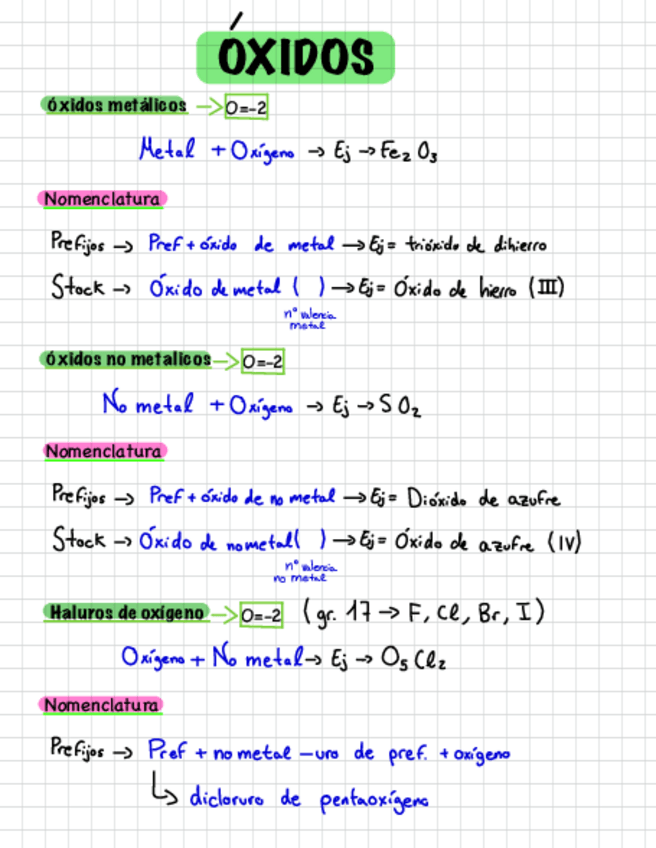 ÓXIDOS
óxidos metálicos → O=-2
Metal + Oxígeno → Ej → Fe₂O₃
Nomenclatura
Prefijos → Pref + óxido de metal → Ej = trióxido de dihierro
Stock → Óxido de metal ( ) → Ej = Óxido de hierro (III)
nº valencia
metal
óxidos no metalicos → O=-2
No metal + Oxígeno → Ej → SO₂
Nomenclatura
Prefijos → Pref + óxido de no metal → Ej = Dióxido de azufre
Stock → Óxido de no metal ( ) → Ej = Óxido de azufre (IV)
nº valencia
no metal
Haluros de oxígeno → O=-2 (gr. 17 → F, Cl, Br, I)
Oxígeno + No metal → Ej → O₅Cl₂
Nomenclatura
Prefijos → Pref + no metal -uro de pref. + oxígeno
↳ dicloruro de pentaoxígeno